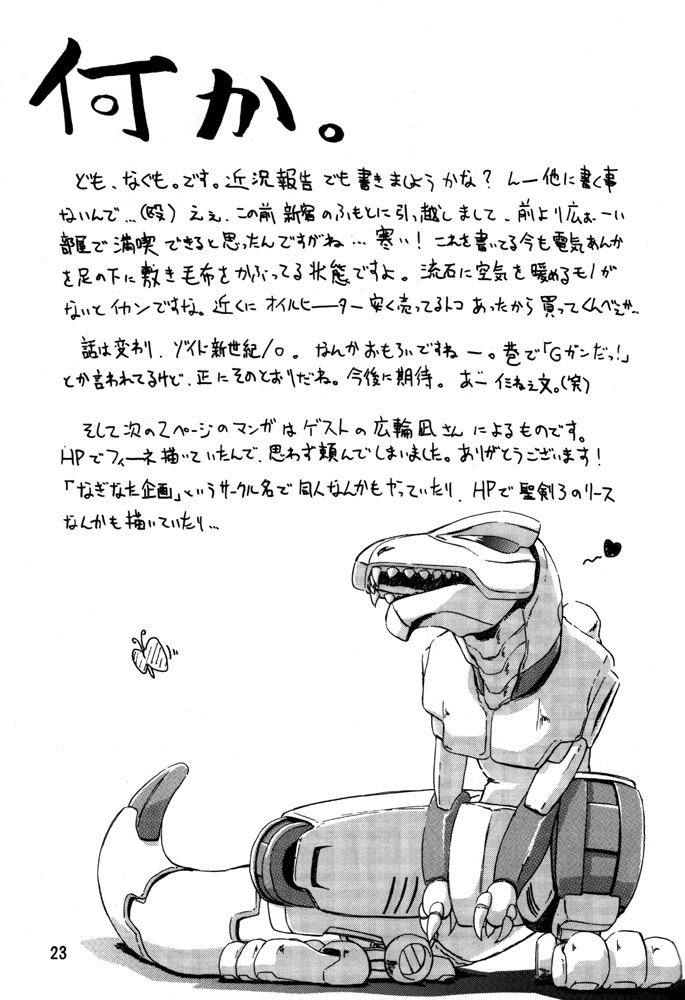 何か。
ども、なぐも。です。近況報告でも書きましようかな? んー他に書く事
ないんで…(殴) えぇ、この前新宿のふもとに引っ越しまして、前より広ぉーい
部屋で満喫できると思ったんですがね…寒い!これを書いてる今も電気あんか
を足の下に敷き毛布をかぶってる状態ですよ。流石に空気を暖めるモノが
ないとイカンですな。近くにオイルヒーター安く売ってるトコあったから買ってくんべぇか…
話は変わり、ゾイド新世紀/0。なんかおもろいですねー。巷で「Gガンだっ!」
とか言われてるけど、正にそのとおりだね。今後に期待。あー仁ねぇ文。(笑)
そして次の2ページのマンガはゲストの広輪凪さんによるものです。
HPでフィーネ描いていたんで、思わず頼んでしまいました。ありがとうございます!
「なぎなた企画」というサークル名で同人なんかもやっていたり、HPで聖剣3のリース
なんかも描いていたり…
23